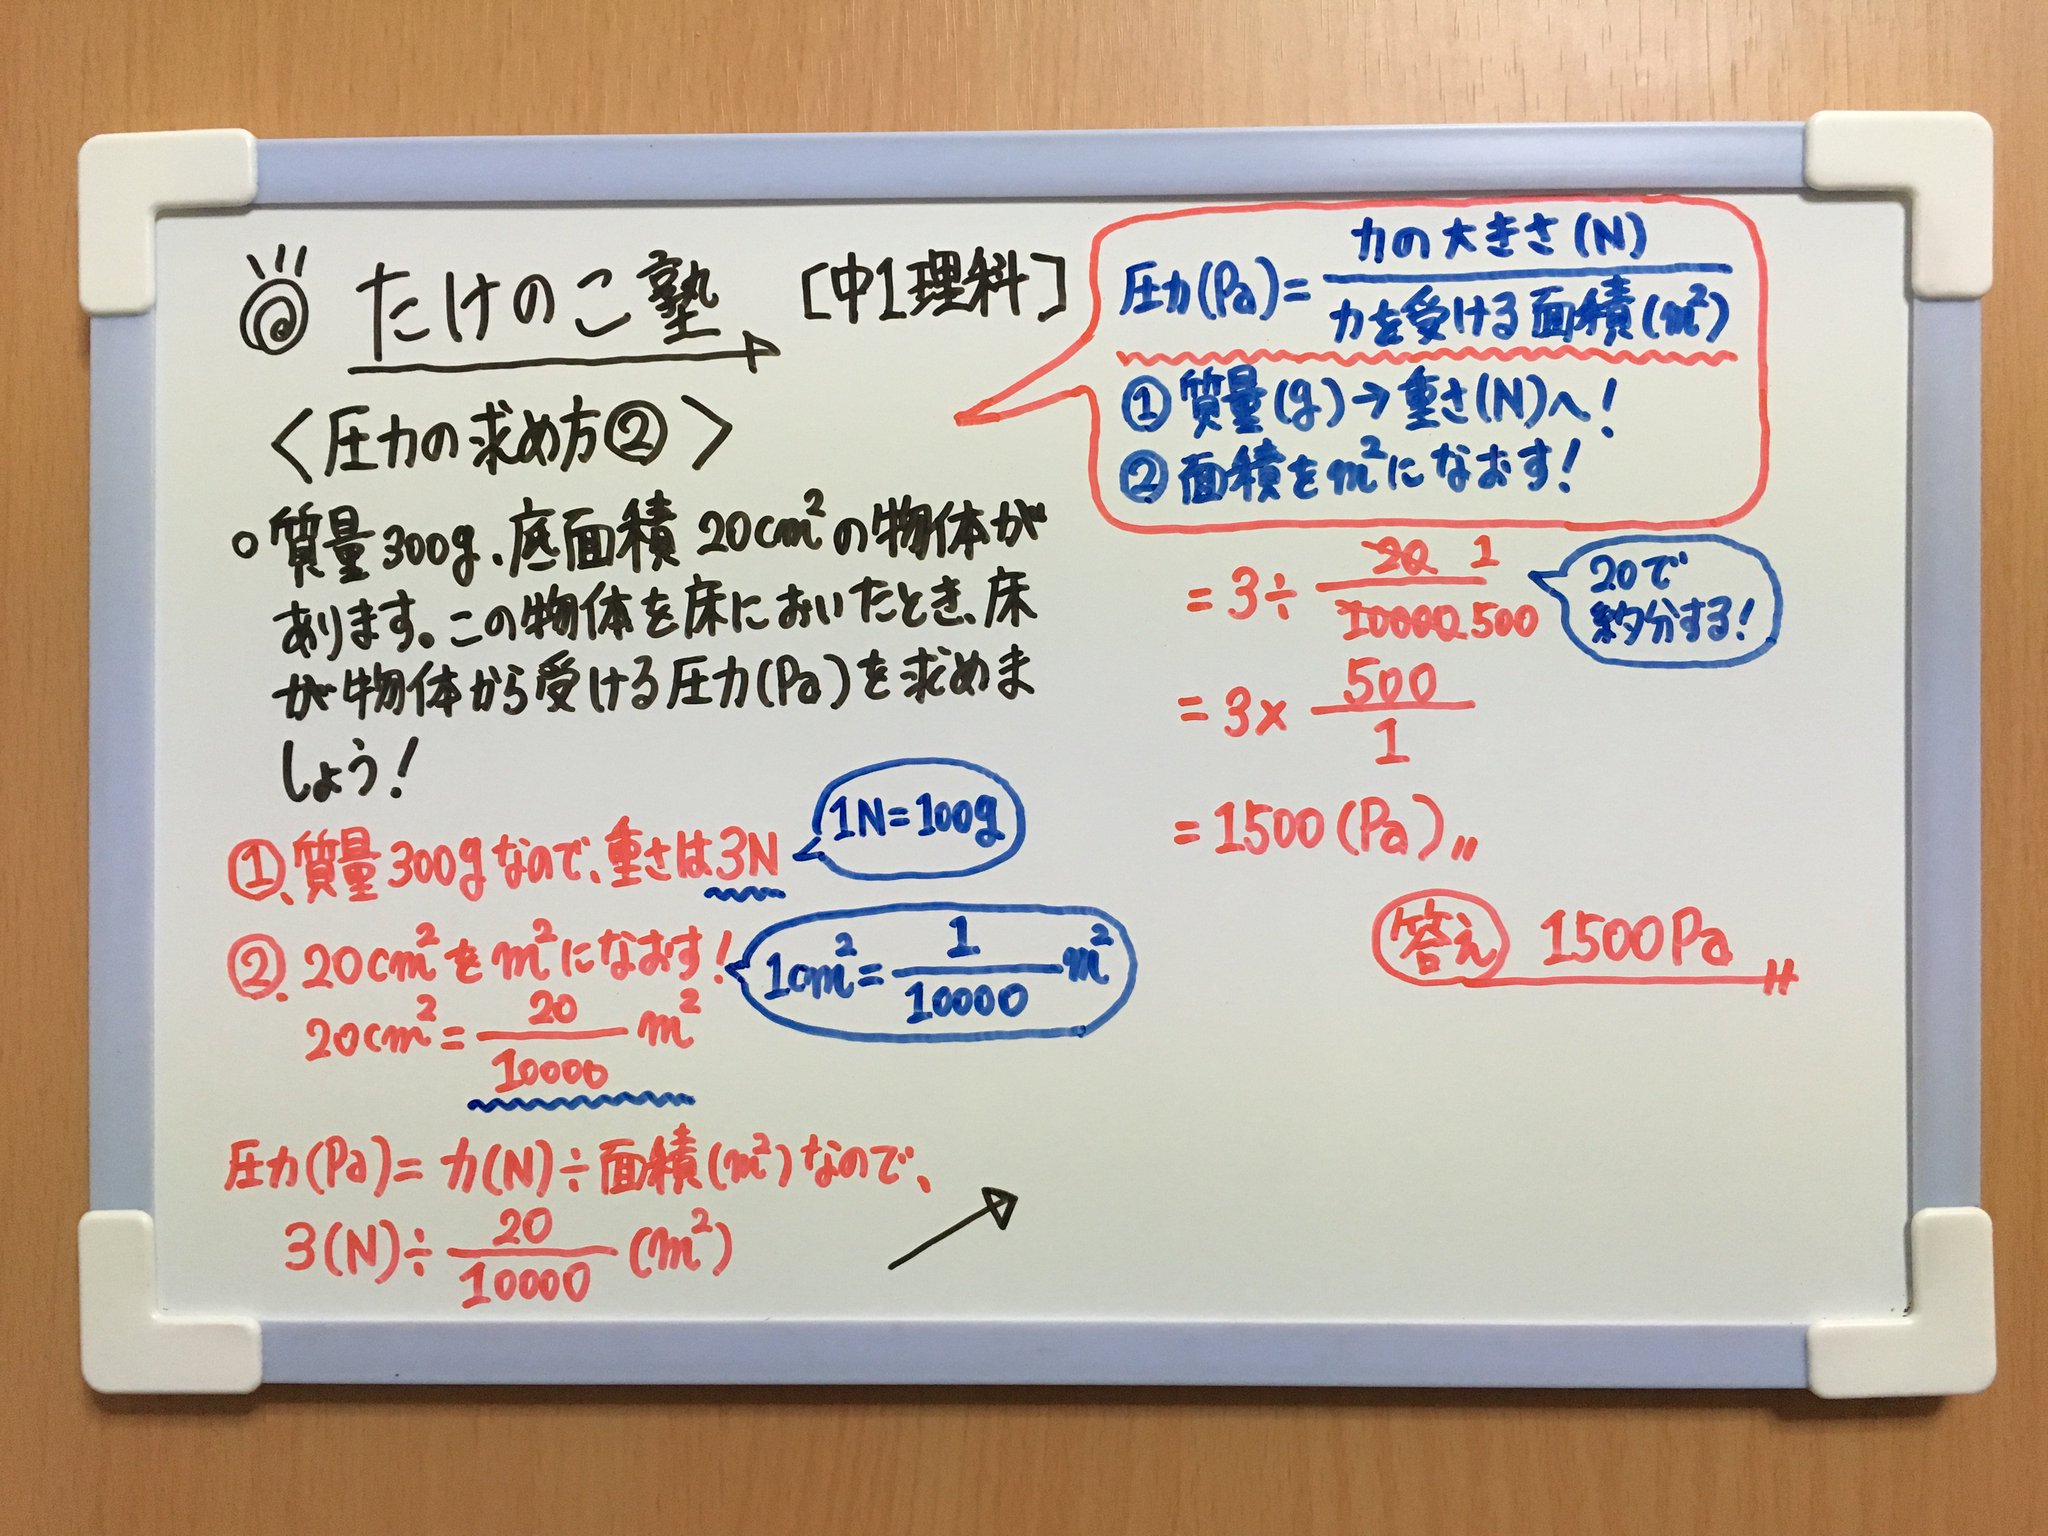 たけのこ塾 [中1理科]
〈圧力の求め方②〉
○質量300g、底面積20cm²の物体が
あります。この物体を床においたとき、床
が物体から受ける圧力(Pa)を求めま
しょう!
①、質量300gなので、重さは3N
1N=100g
②、20cm²をm²になおす!
1cm²=1/10000 m²
20cm²=20/10000 m²
圧力(Pa)=力(N)÷面積(m²)なので、
3(N)÷20/10000(m²)
圧力(Pa)=力の大きさ(N)/力を受ける面積(m²)
①質量(g)→重さ(N)へ!
②面積をm²になおす!
=3÷20 1/10000 500
20で
約分する!
=3×500/1
=1500(Pa)〃
答え 1500Pa